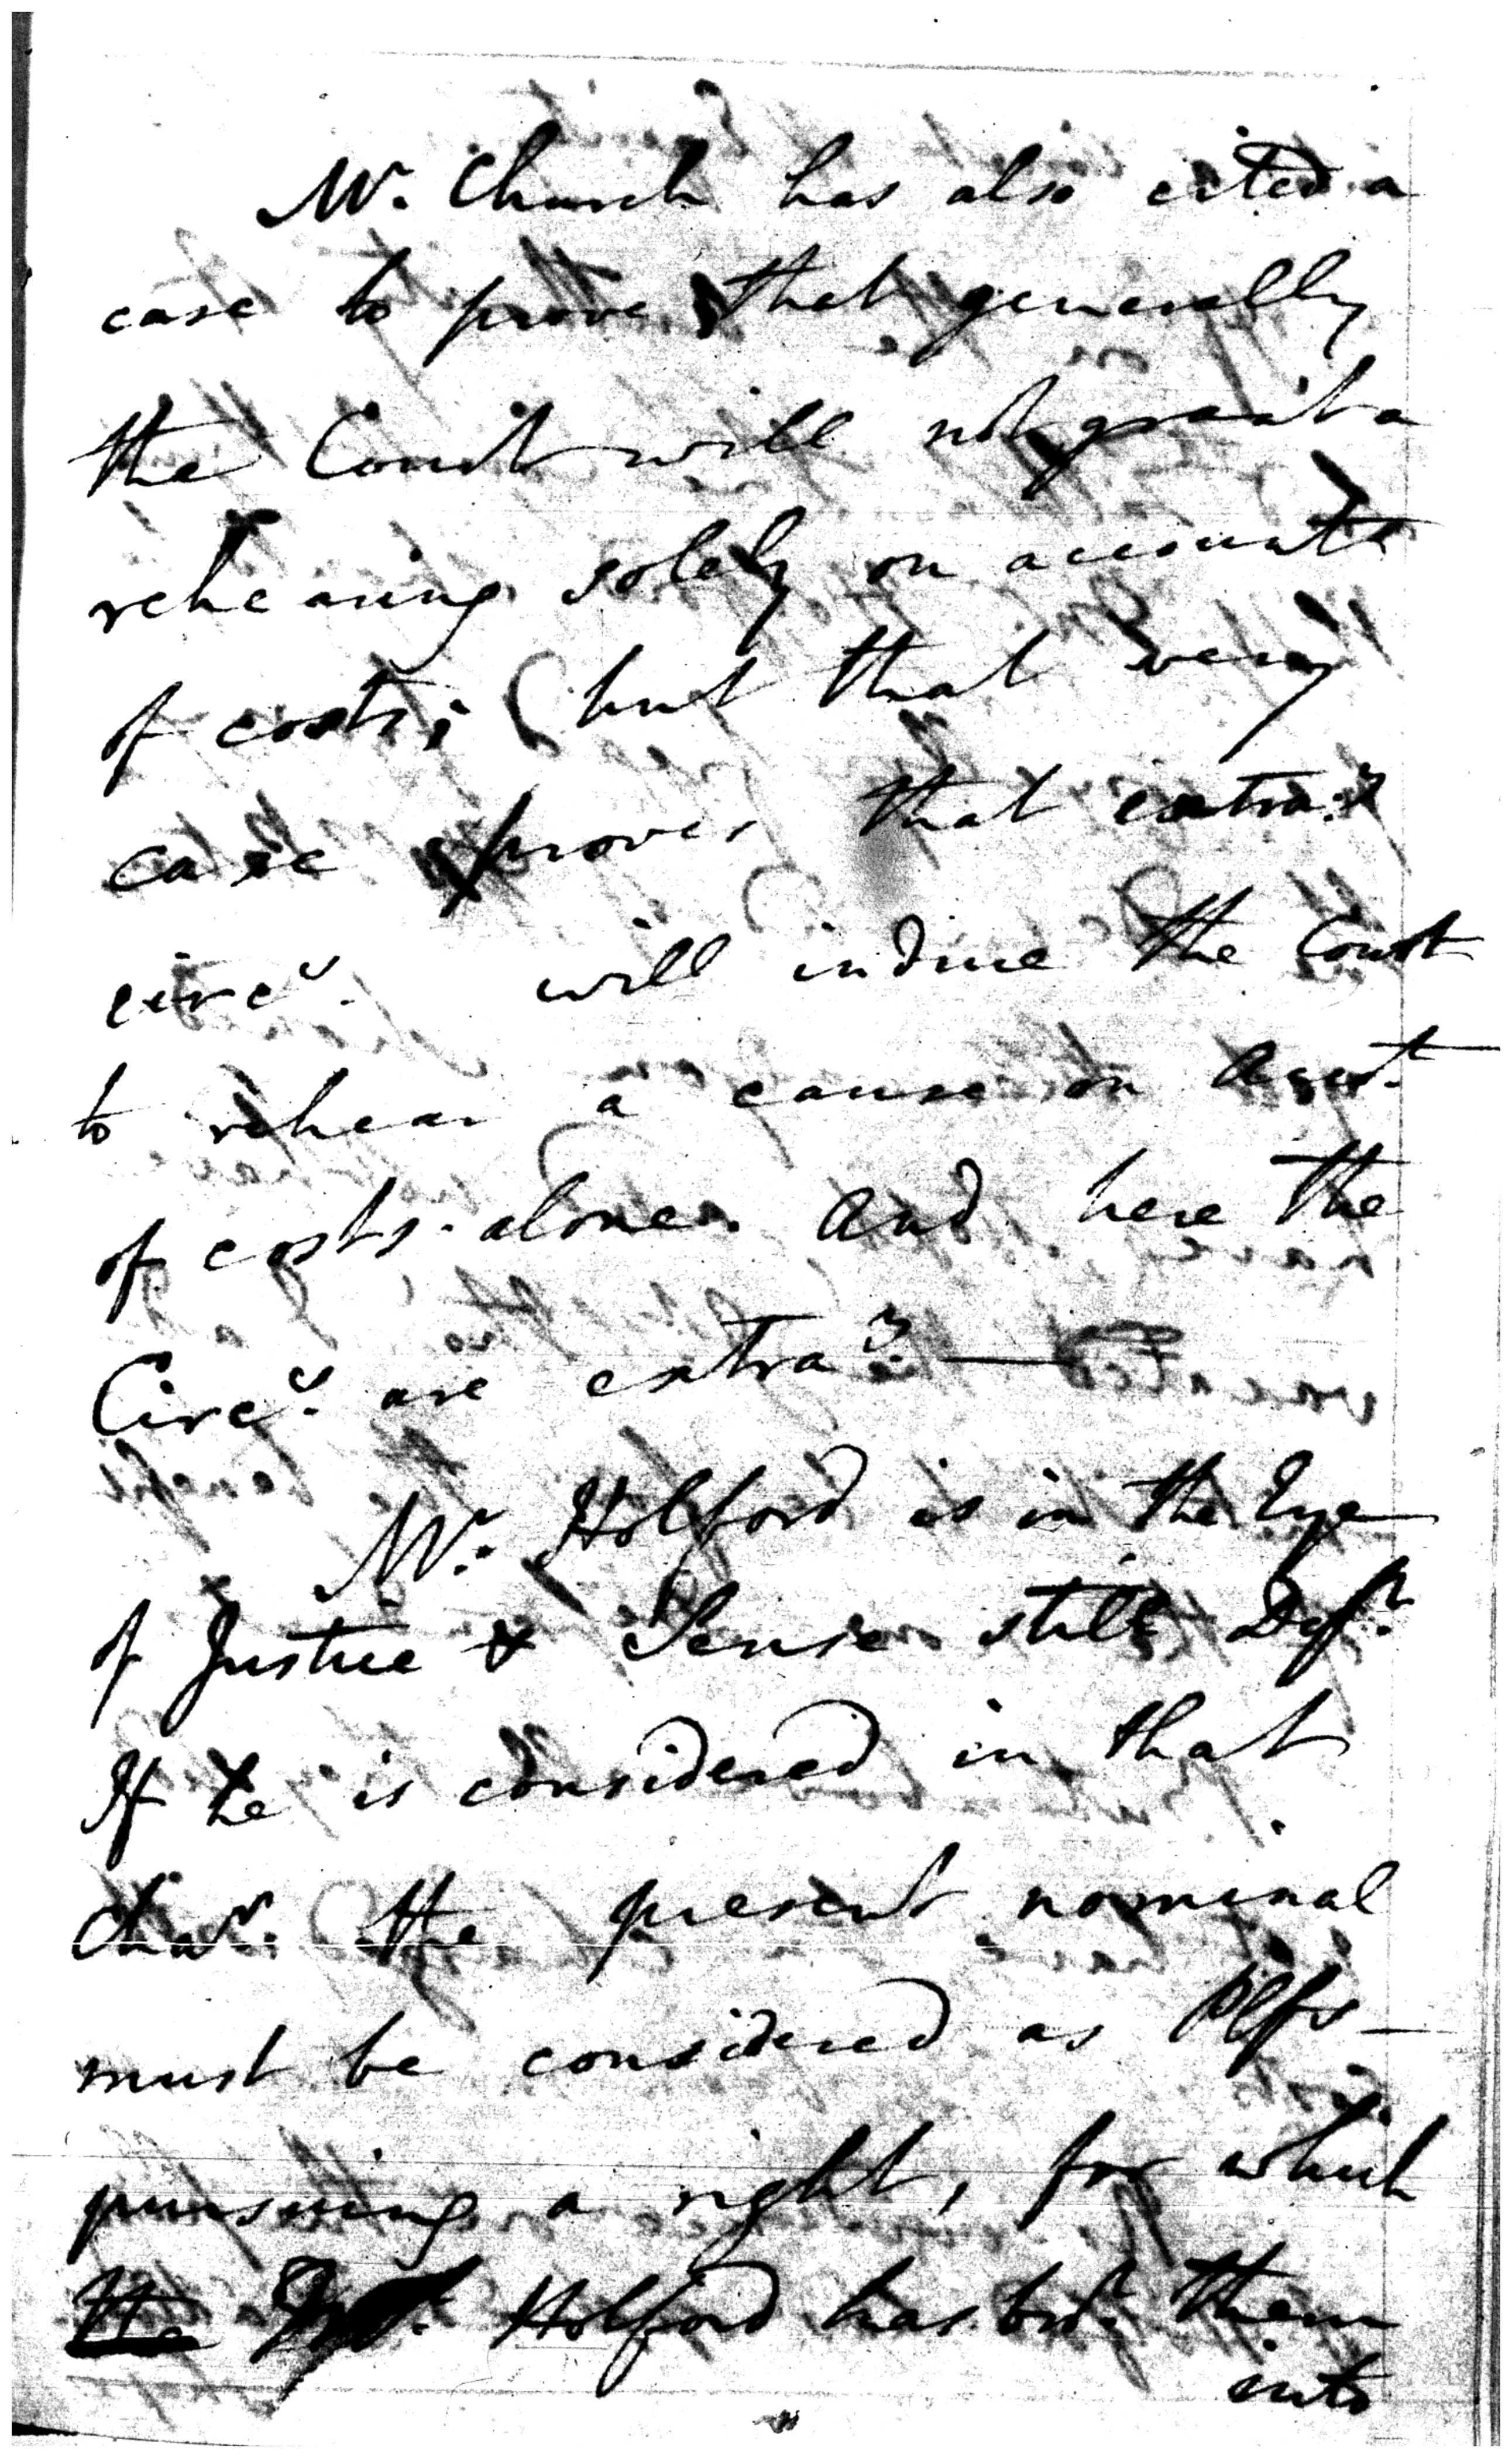 Mr. Church has also cited a
case to prove that generally
the Court will not grant a
rehearing solely on account
of costs; but that very
case proves that extra.y
circs. will induce the Court
to rehear a cause on Acct.
of costs alone. And here the
Circs. are extray. —
Mr. Holford is in the Eye
of Justice & Sense still Deft.
If he is considered in that
Char. the present nominal
must be considered as Plfs —
pursuing a right, for which
the Holford has brot. them
into